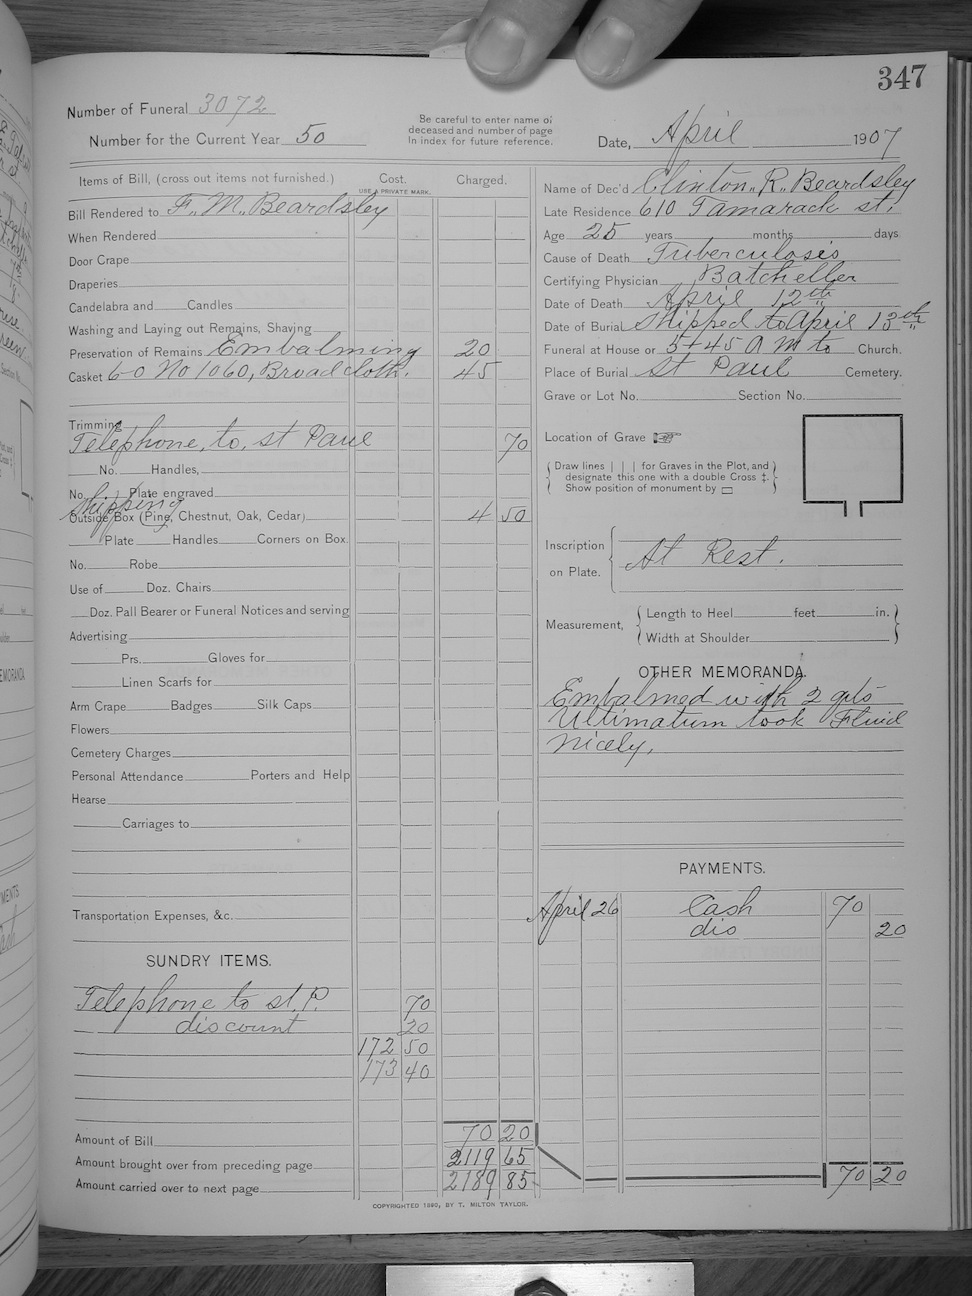 347
Number of Funeral 3072
Number for the Current Year 50
Be careful to enter name of
deceased and number of page
In index for future reference.
Date, April 1907
Items of Bill, (cross out items not furnished.) Cost. Charged.
USE A PRIVATE MARK.
Bill Rendered to F. M. Beardsley
When Rendered
Door Crape
Draperies
Candelabra and Candles
Washing and Laying out Remains, Shaving
Preservation of Remains Embalming 20
Casket 6-0 No 1060, Broadcloth. 45
Trimming
Telephone, to, st Paul 70
No. Handles,
No. Plate engraved
shipping
Outside Box (Pine, Chestnut, Oak, Cedar) 4 50
Plate Handles Corners on Box.
No. Robe
Use of Doz. Chairs
Doz. Pall Bearer or Funeral Notices and serving
Advertising
Prs. Gloves for
Linen Scarfs for
Arm Crape Badges Silk Caps
Flowers
Cemetery Charges
Personal Attendance Porters and Help
Hearse
Carriages to
Transportation Expenses, &c.
SUNDRY ITEMS.
Telephone to st. P. 70
discount 20
172 50
173 40
Amount of Bill 70 20
Amount brought over from preceding page 2119 65
Amount carried over to next page 2189 85
Name of Dec'd Clinton. R. Beardsley
Late Residence 610 Tamarack st.
Age 25 years months days
Cause of Death Tuberculosis
Certifying Physician Batcheller
Date of Death April 12th
Date of Burial Shipped to April 13th
Funeral at House or 5+45 A M to Church.
Place of Burial St Paul Cemetery.
Grave or Lot No. Section No.
Location of Grave
Draw lines | | | for Graves in the Plot, and
designate this one with a double Cross ‡.
Show position of monument by
Inscription
on Plate. At Rest.
Measurement, Length to Heel feet in.
Width at Shoulder
OTHER MEMORANDA.
Embalmed with 2 qts
Ultimatum took Fluid
nicely,
PAYMENTS.
April 26 Cash 70
dis 20
70 20
COPYRIGHTED 1890, BY T. MILTON TAYLOR.